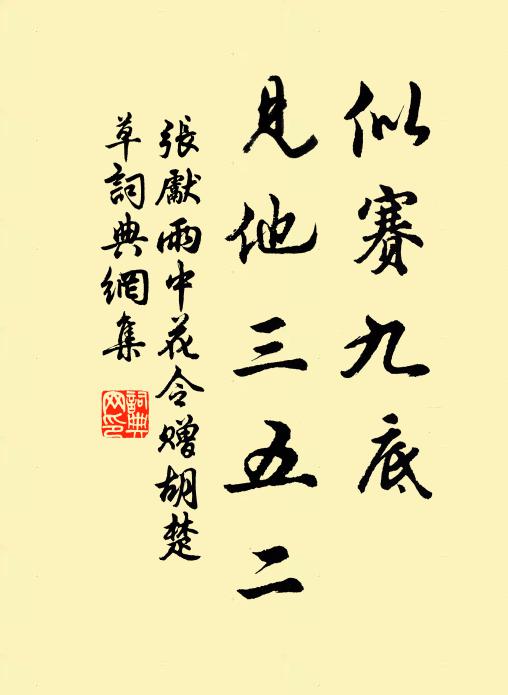 似賽九底
見他三五二
張獻雨中花令贈胡楚
草詞典網集
詞典
网印